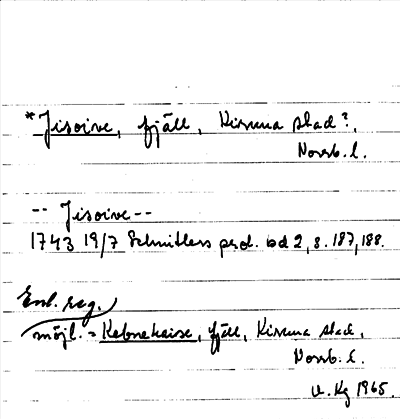 *Jisoive, fjäll, Kiruna stad?,
Norrb. l.
-- Jisoive --
1743 19/7 Schnitlers prot. bd 2, s. 187, 188.
Enl. reg.
möjl. = Kebnekaise, fjäll, Kiruna stad,
Norrb. l.
1965.